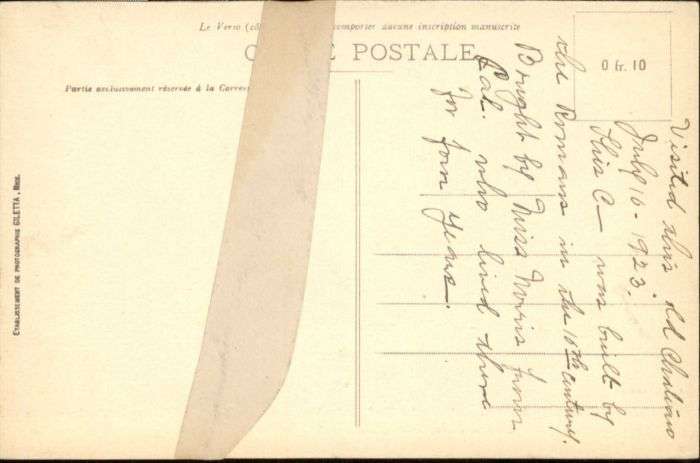 Le Verso comporter aucune inscription manuscrite
POSTALE
Partie exclusivement réservée à la
0 fr. 10
ETABLISSEMENT DE PHOTOGRAPHIE GILETTA, Nice.
Visited this old Chateau
July 16 - 1923.
This C— was built by
the Romans in the 10th century.
Bought by Miss Norris from
Cal. who lived there
for four years.